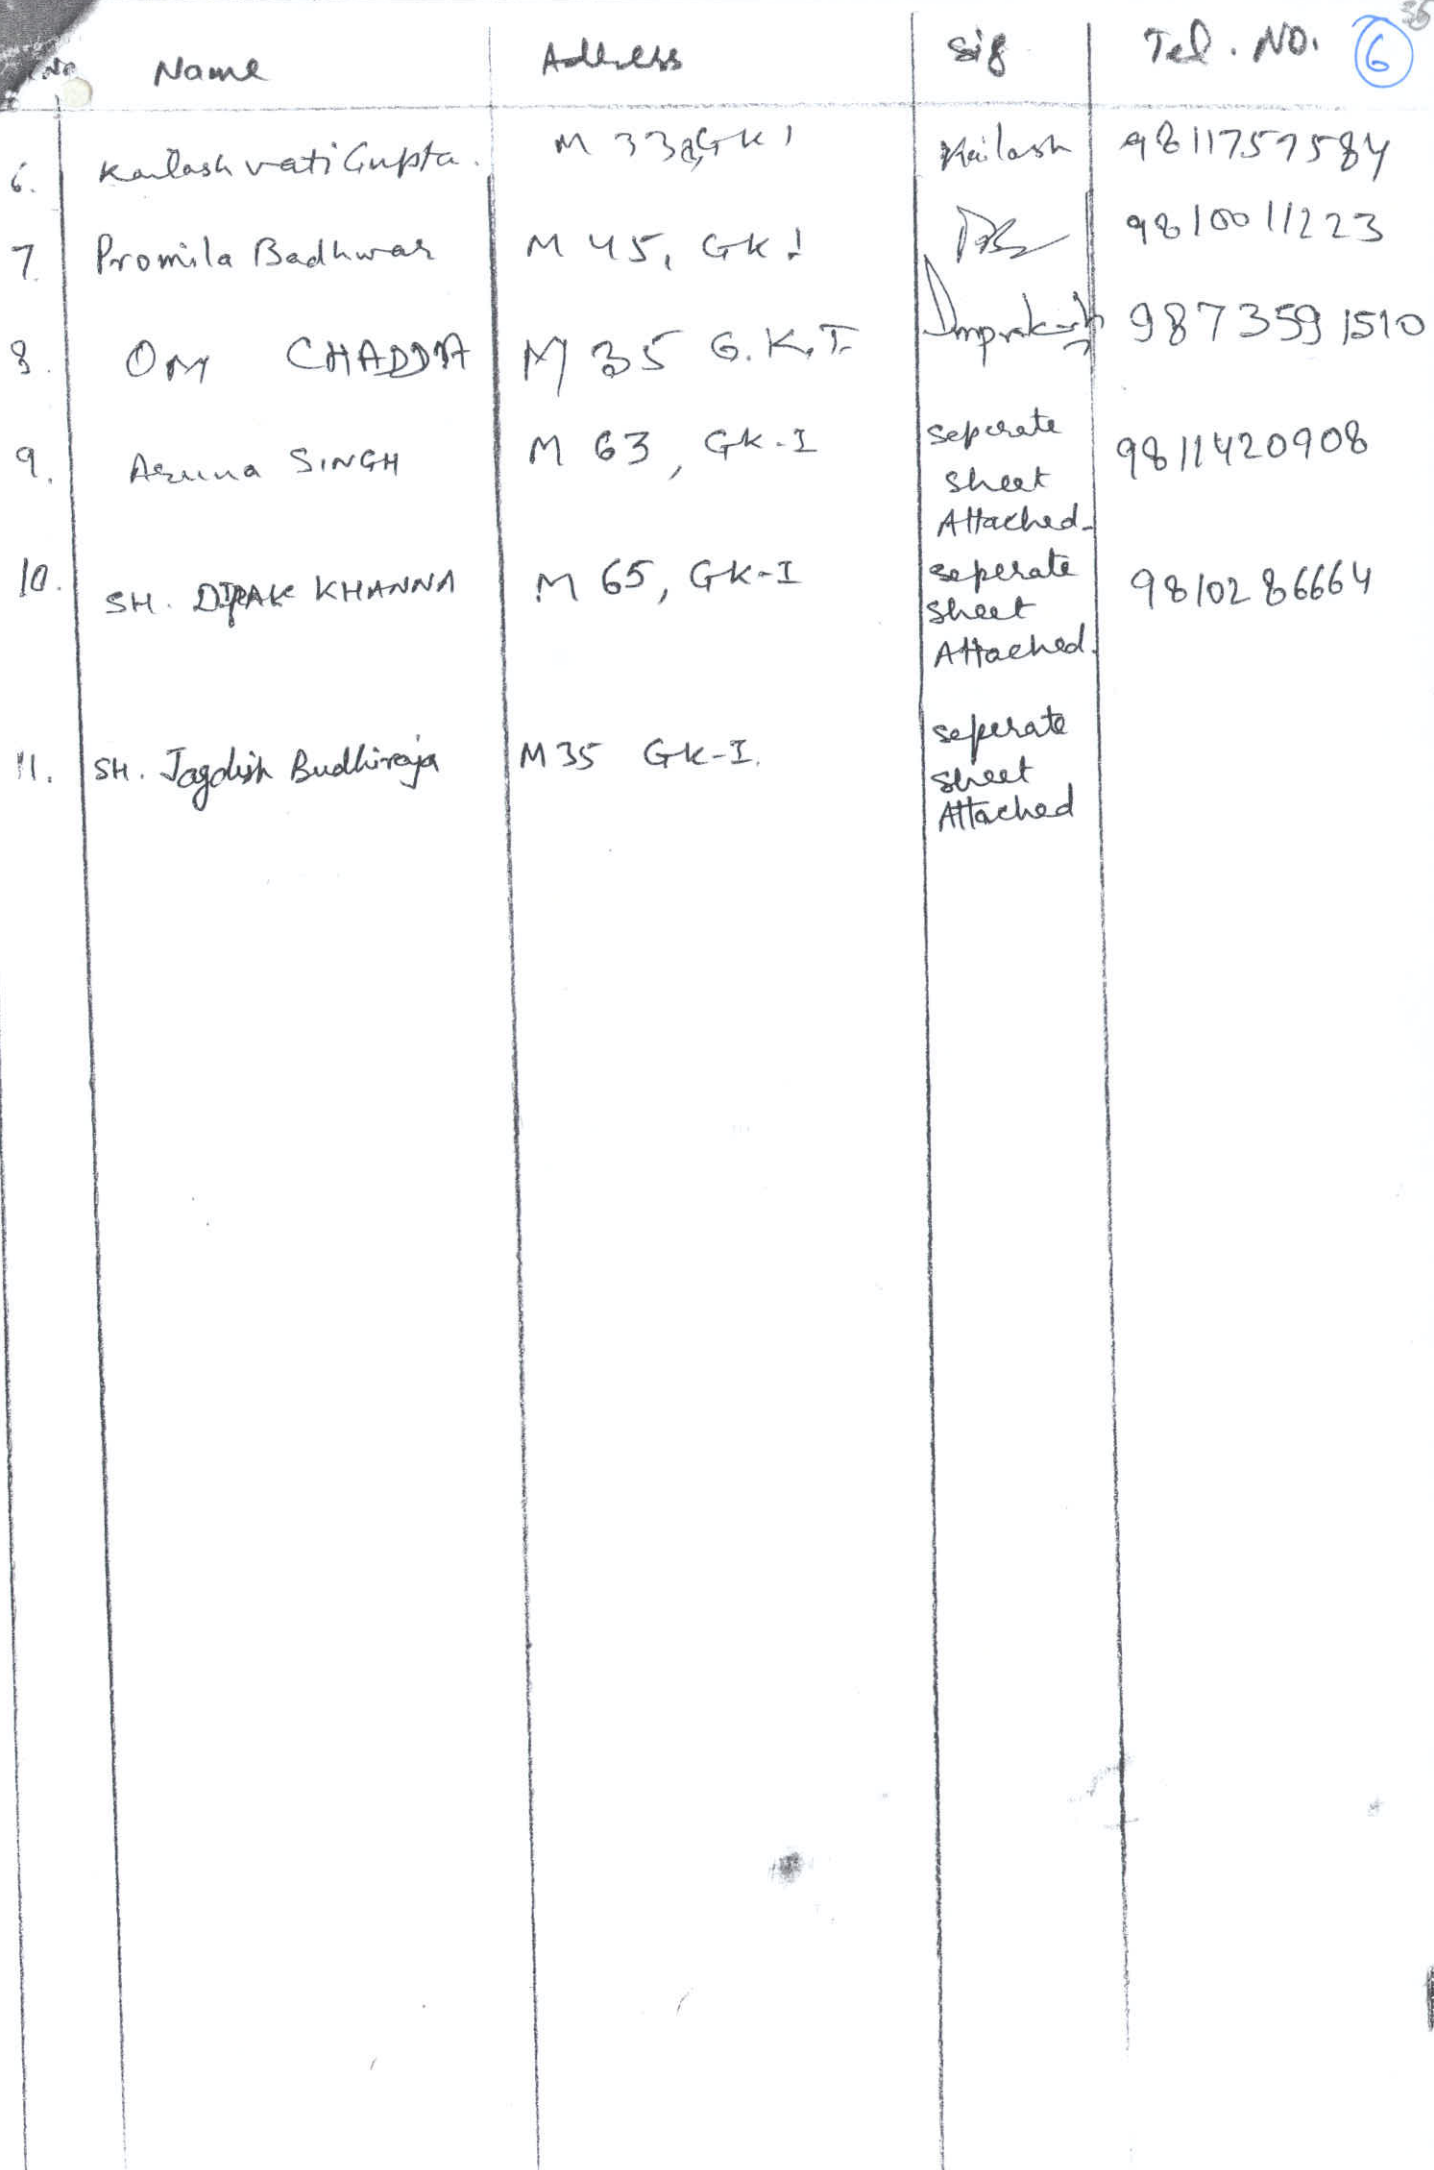 No Name Address Sig Tel. No. 6
6. Kailash vati Gupta. M 33 GK 1 Kailash
7. Promila Badhwar M 45, GK 1 9810011223
8. OM CHADDA M 35 G.K.I. Omprakash 9873591510
9. Aruna SINGH M 63, GK-I seperate 9811420908
sheet
Attached
10. SH. DIPAK KHANNA M 65, GK-I seperate 9810286664
sheet
Attached.
11. SH. Jagdish Budhiraja M 35 GK-I. seperate
sheet
Attached